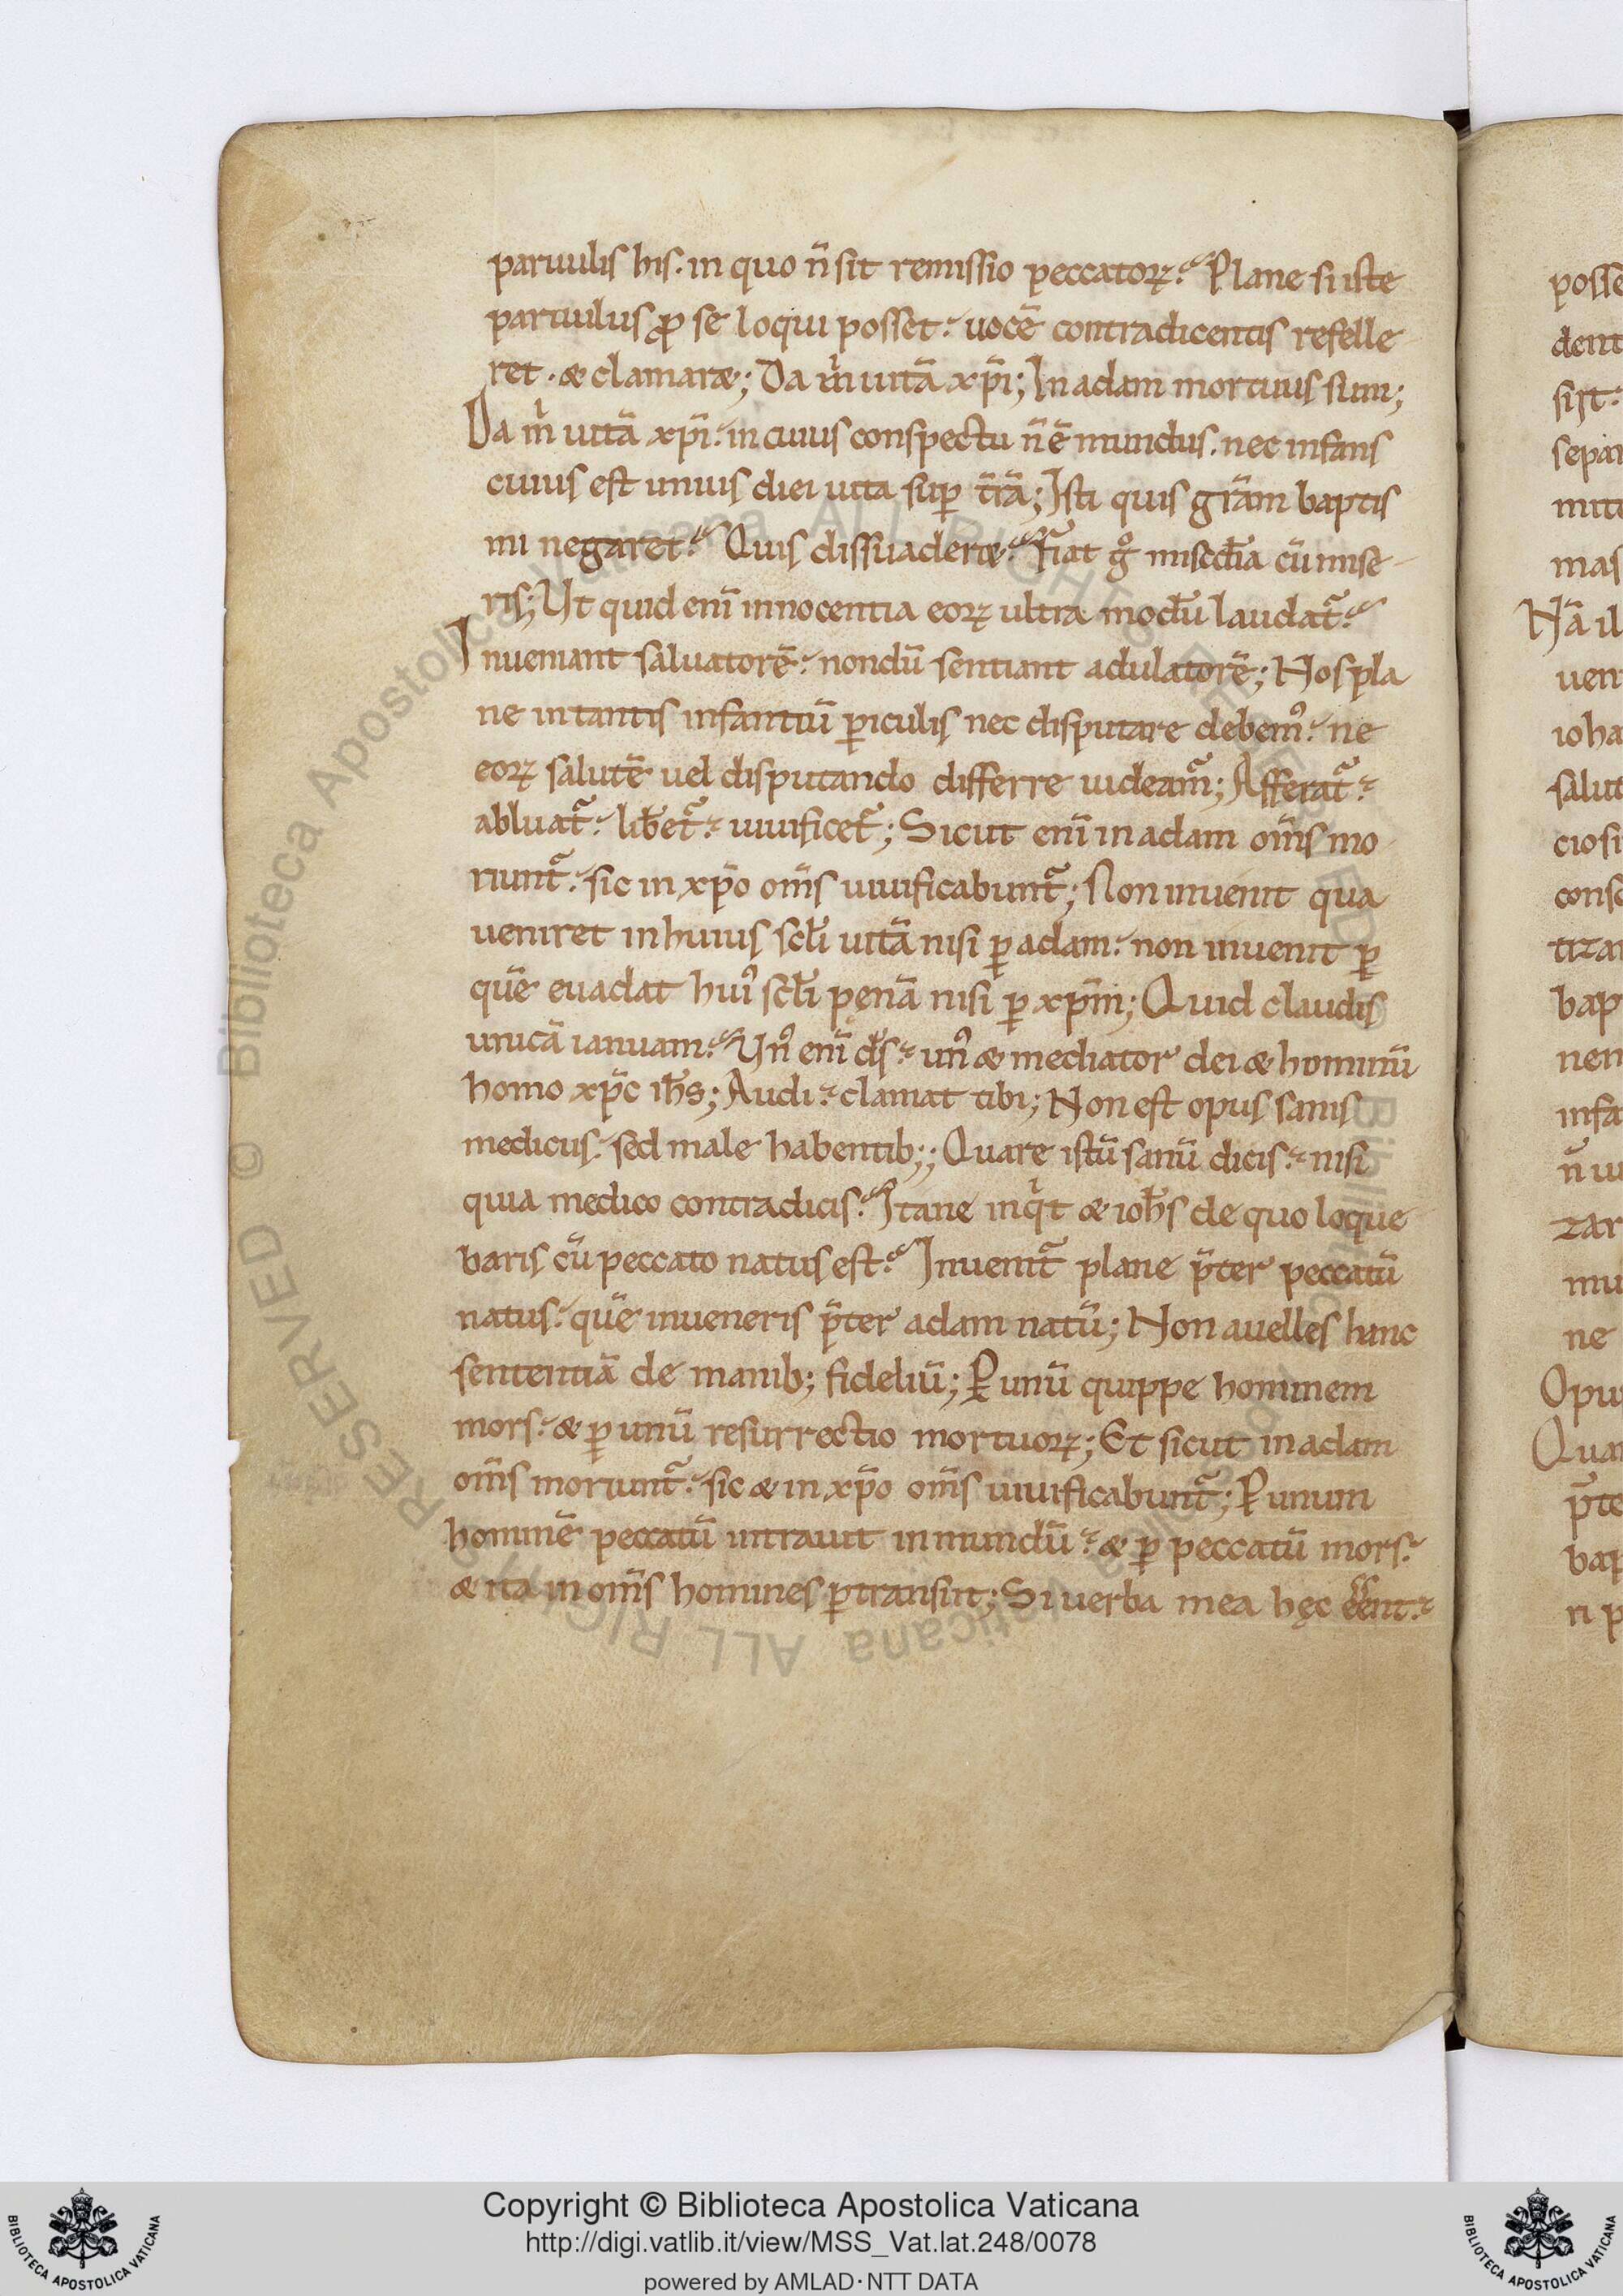 paruulis his. in quo n̄ sit remissio peccatoꝝ. Plane si iste
paruulus ꝓ se loqui posset. uocē contradicentis refelle
ret. & clamar&; Da m̊ uitā xp̄i; In adam mortuus sum;
Da m̊ uitā xp̄i. in cuius conspectu n̄ ē mundus. nec infans
cuius est unius diei uita suꝑ t̄rā; Isti quis grām baptis
mi negaret. Quis dissuader&. Fiat gͦ miscd̄ia cū mise
ris; Ut quid enī innocentia eoꝝ ultra modū laudat᷑.
Inueniant saluatorē. nondū sentiant adulatorē; Nos pla
ne in tantis infantiū ꝑiculis nec disputare debemꝰ. ne
eoꝝ salutē uel disputando differre uideam᷑; Afferat᷑.
abluat᷑. lib̄et᷑. uiuificet᷑; Sicut enī in adam om̄s mo
riunt᷑. sic in xp̄o om̄s uiuificabunt᷑; Non inuenit qua
ueniret in huius sc̄li uitā nisi ꝑ adam. non inuenit ꝑ
quē euadat huiꝰ sc̄li pęnā nisi ꝑ xp̄m; Quid claudis
unicā ianuam. Unꝰ enī d̄s. unꝰ & mediator dei & hominū
homo xp̄c ih̄s; Audi. clamat tibi; Non est opus sanis
medicus. sed male habentib;; Quare istū sanū dicis. nisi
quia medico contradicis. Itane inqͥt & ioh̄s de quo loque
baris cū peccato natus est. Inuenit᷑ plane p̄ter peccatū
natus. quē inueneris p̄ter adam natū; Non auelles hanc
sententiā de manib; fideliū; Ꝑ unū quippe hominem
mors. & ꝑ unū resurrectio mortuoꝝ; Et sicut in adam
om̄s moriunt᷑. sic & in xp̄o om̄s uiuificabunt᷑; Ꝑ unum
hominē peccatū intrauit in mundū. & ꝑ peccatū mors.
& ita in om̄s homines ꝑtransiit; Si uerba mea hęc ēent.
posse
dent
sepa
mas
Nā il
uen
ioha
salut
ciosi
cons
tiza
bap
nen
infa
n̄ ui
zar
mu
ne
Opu
Qua
p̄te
bap
ri p
Copyright © Biblioteca Apostolica Vaticana
http://digi.vatlib.it/view/MSS_Vat.lat.248/0078
powered by AMLAD·NTT DATA
BIBLIOTECA APOSTOLICA VATICANA
BIBLIOTECA APOSTOLICA VATICANA